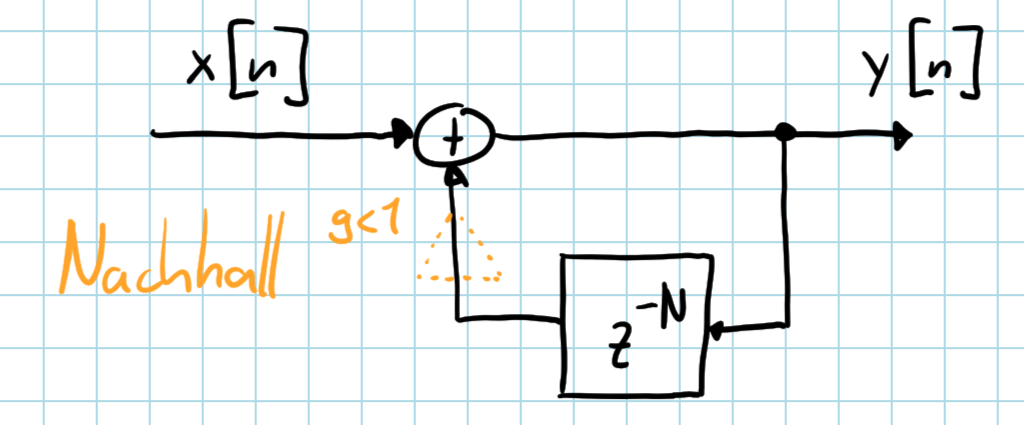 x[n] y[n]
+
Nachhall g<1
z^-N